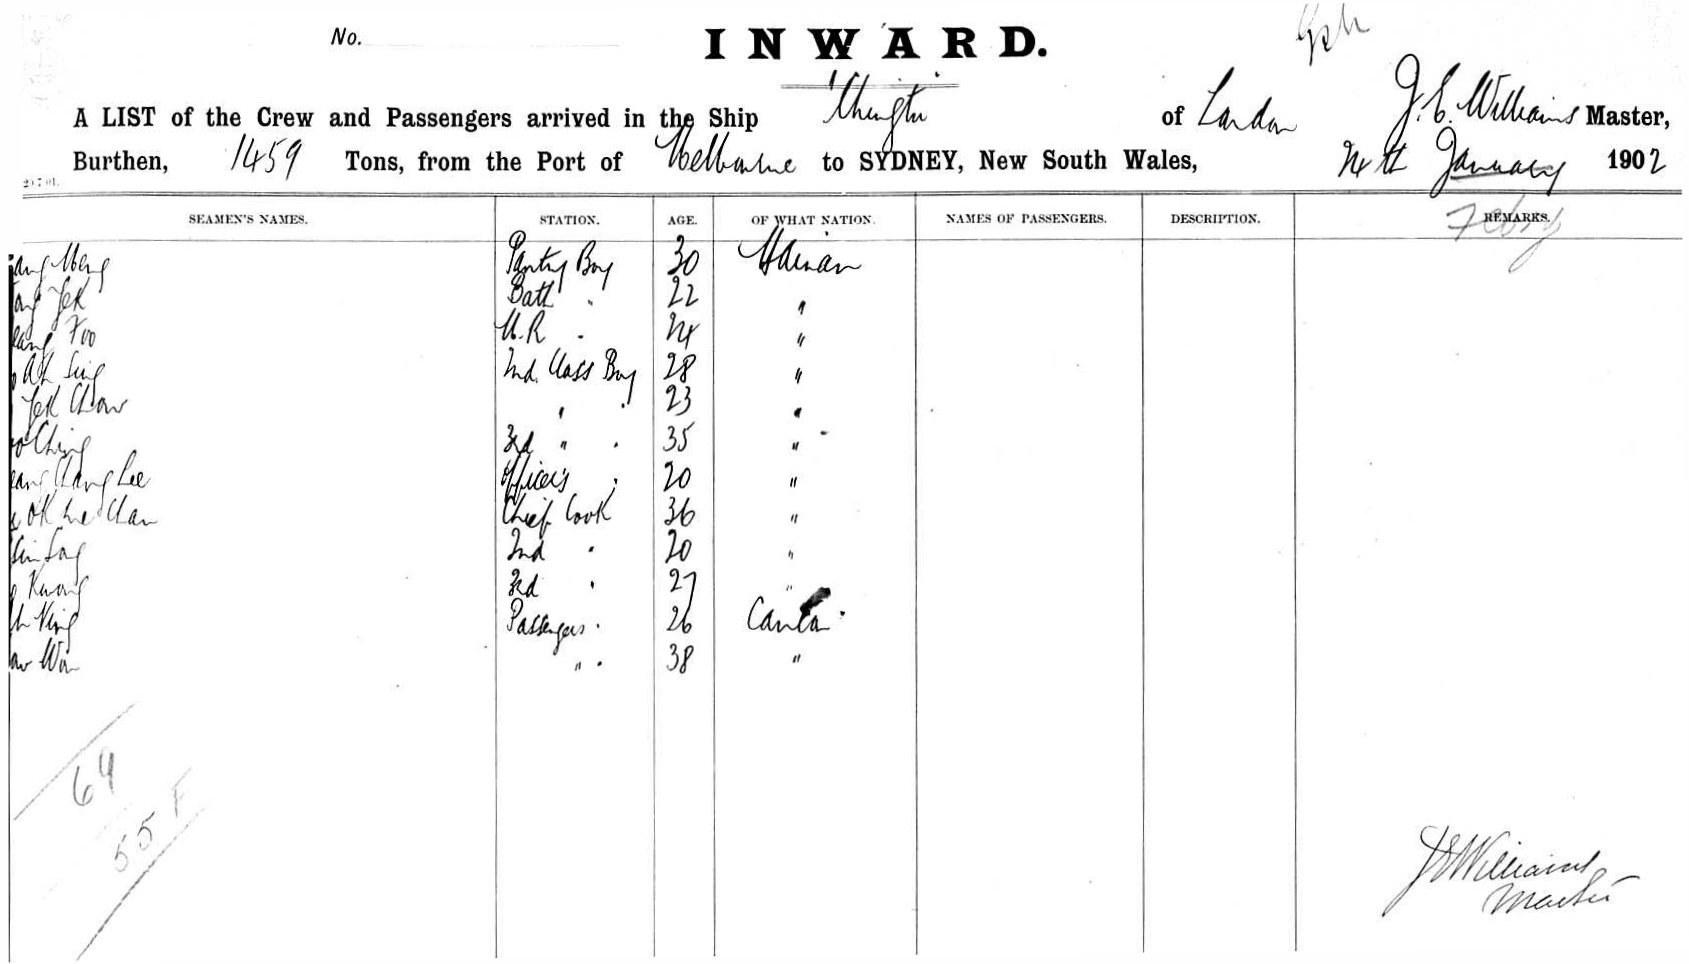 No.
INWARD.
A LIST of the Crew and Passengers arrived in the Ship "Chingtu" of London J. E. Williams Master,
Burthen, 1459 Tons, from the Port of Melbourne to SYDNEY, New South Wales, 24th January 1902
SEAMEN'S NAMES. STATION. AGE. OF WHAT NATION. NAMES OF PASSENGERS. DESCRIPTION. REMARKS.
Feby
ang Meng Pantry Boy 30 Hainan
ang Yek Bath " 22 "
eang Foo M.R " 24 "
Ah Sing 2nd Class Boy 28 "
Yek Chow " " 23 "
oo Ching 3rd " " 35 "
eang Chang Lee Officer's " 20 "
Chief Cook 36 "
2nd " 20 "
Kwong 3rd " 27 "
Ah Ning Passengers " 26 Canton
" " 38 "
64
55 F
J E Williams
Master